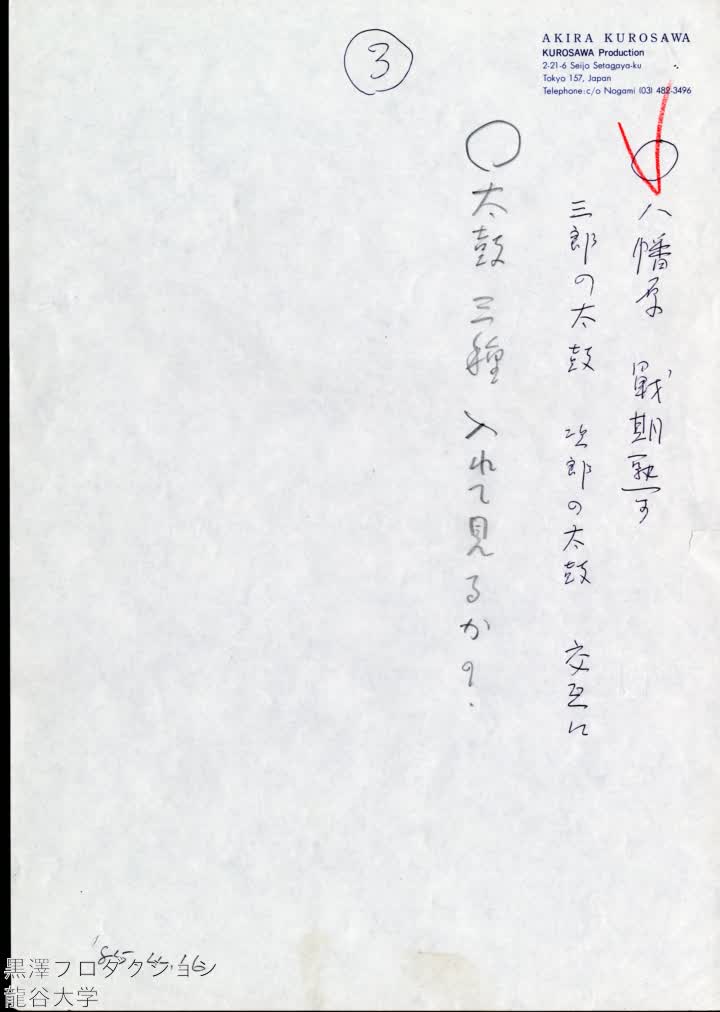 ③
AKIRA KUROSAWA
KUROSAWA Production
2-21-6 Seijo Setagaya-ku
Tokyo 157, Japan
Telephone:c/o Nogami (03) 482-3496
○八幡原 戦期熟す
三郎の太鼓 次郎の太鼓 交互に
○太鼓 三種 入れて見るか?
黒澤プロダクション
龍谷大学